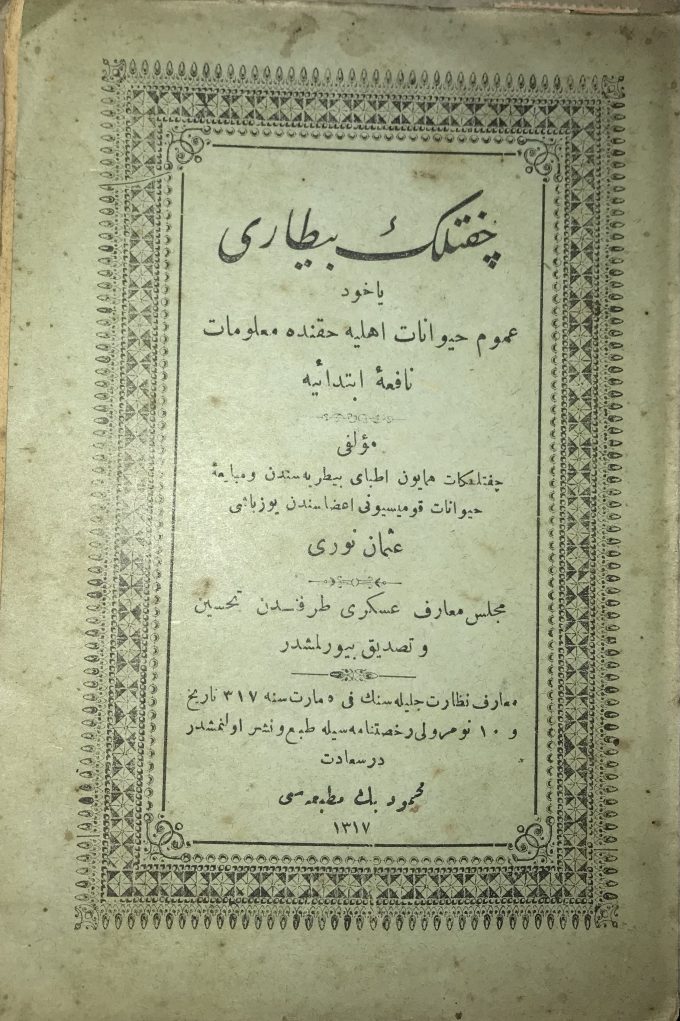 چفتلك بيطارى
ياخود
عموم حيوانات اهليه حقنده معلومات
نافعهٔ ابتدائيه
مؤلفى
چفتلكات همايون اطباى بيطريه سندن ومبايعهٔ
حيوانات قوميسيونى اعضاسندن يوزباشى
عثمان نورى
مجلس معارف عسكرى طرفندن تحسين
وتصديق بيورلمشدر
معارف نظارت جليله سنك فى ٥ مارت سنه ٣١٧ تاريخ
و ١٠ نومرولى رخصتنامه سيله طبع ونشر اولنمشدر
درسعادت
محمود بك مطبعه سى
١٣١٧